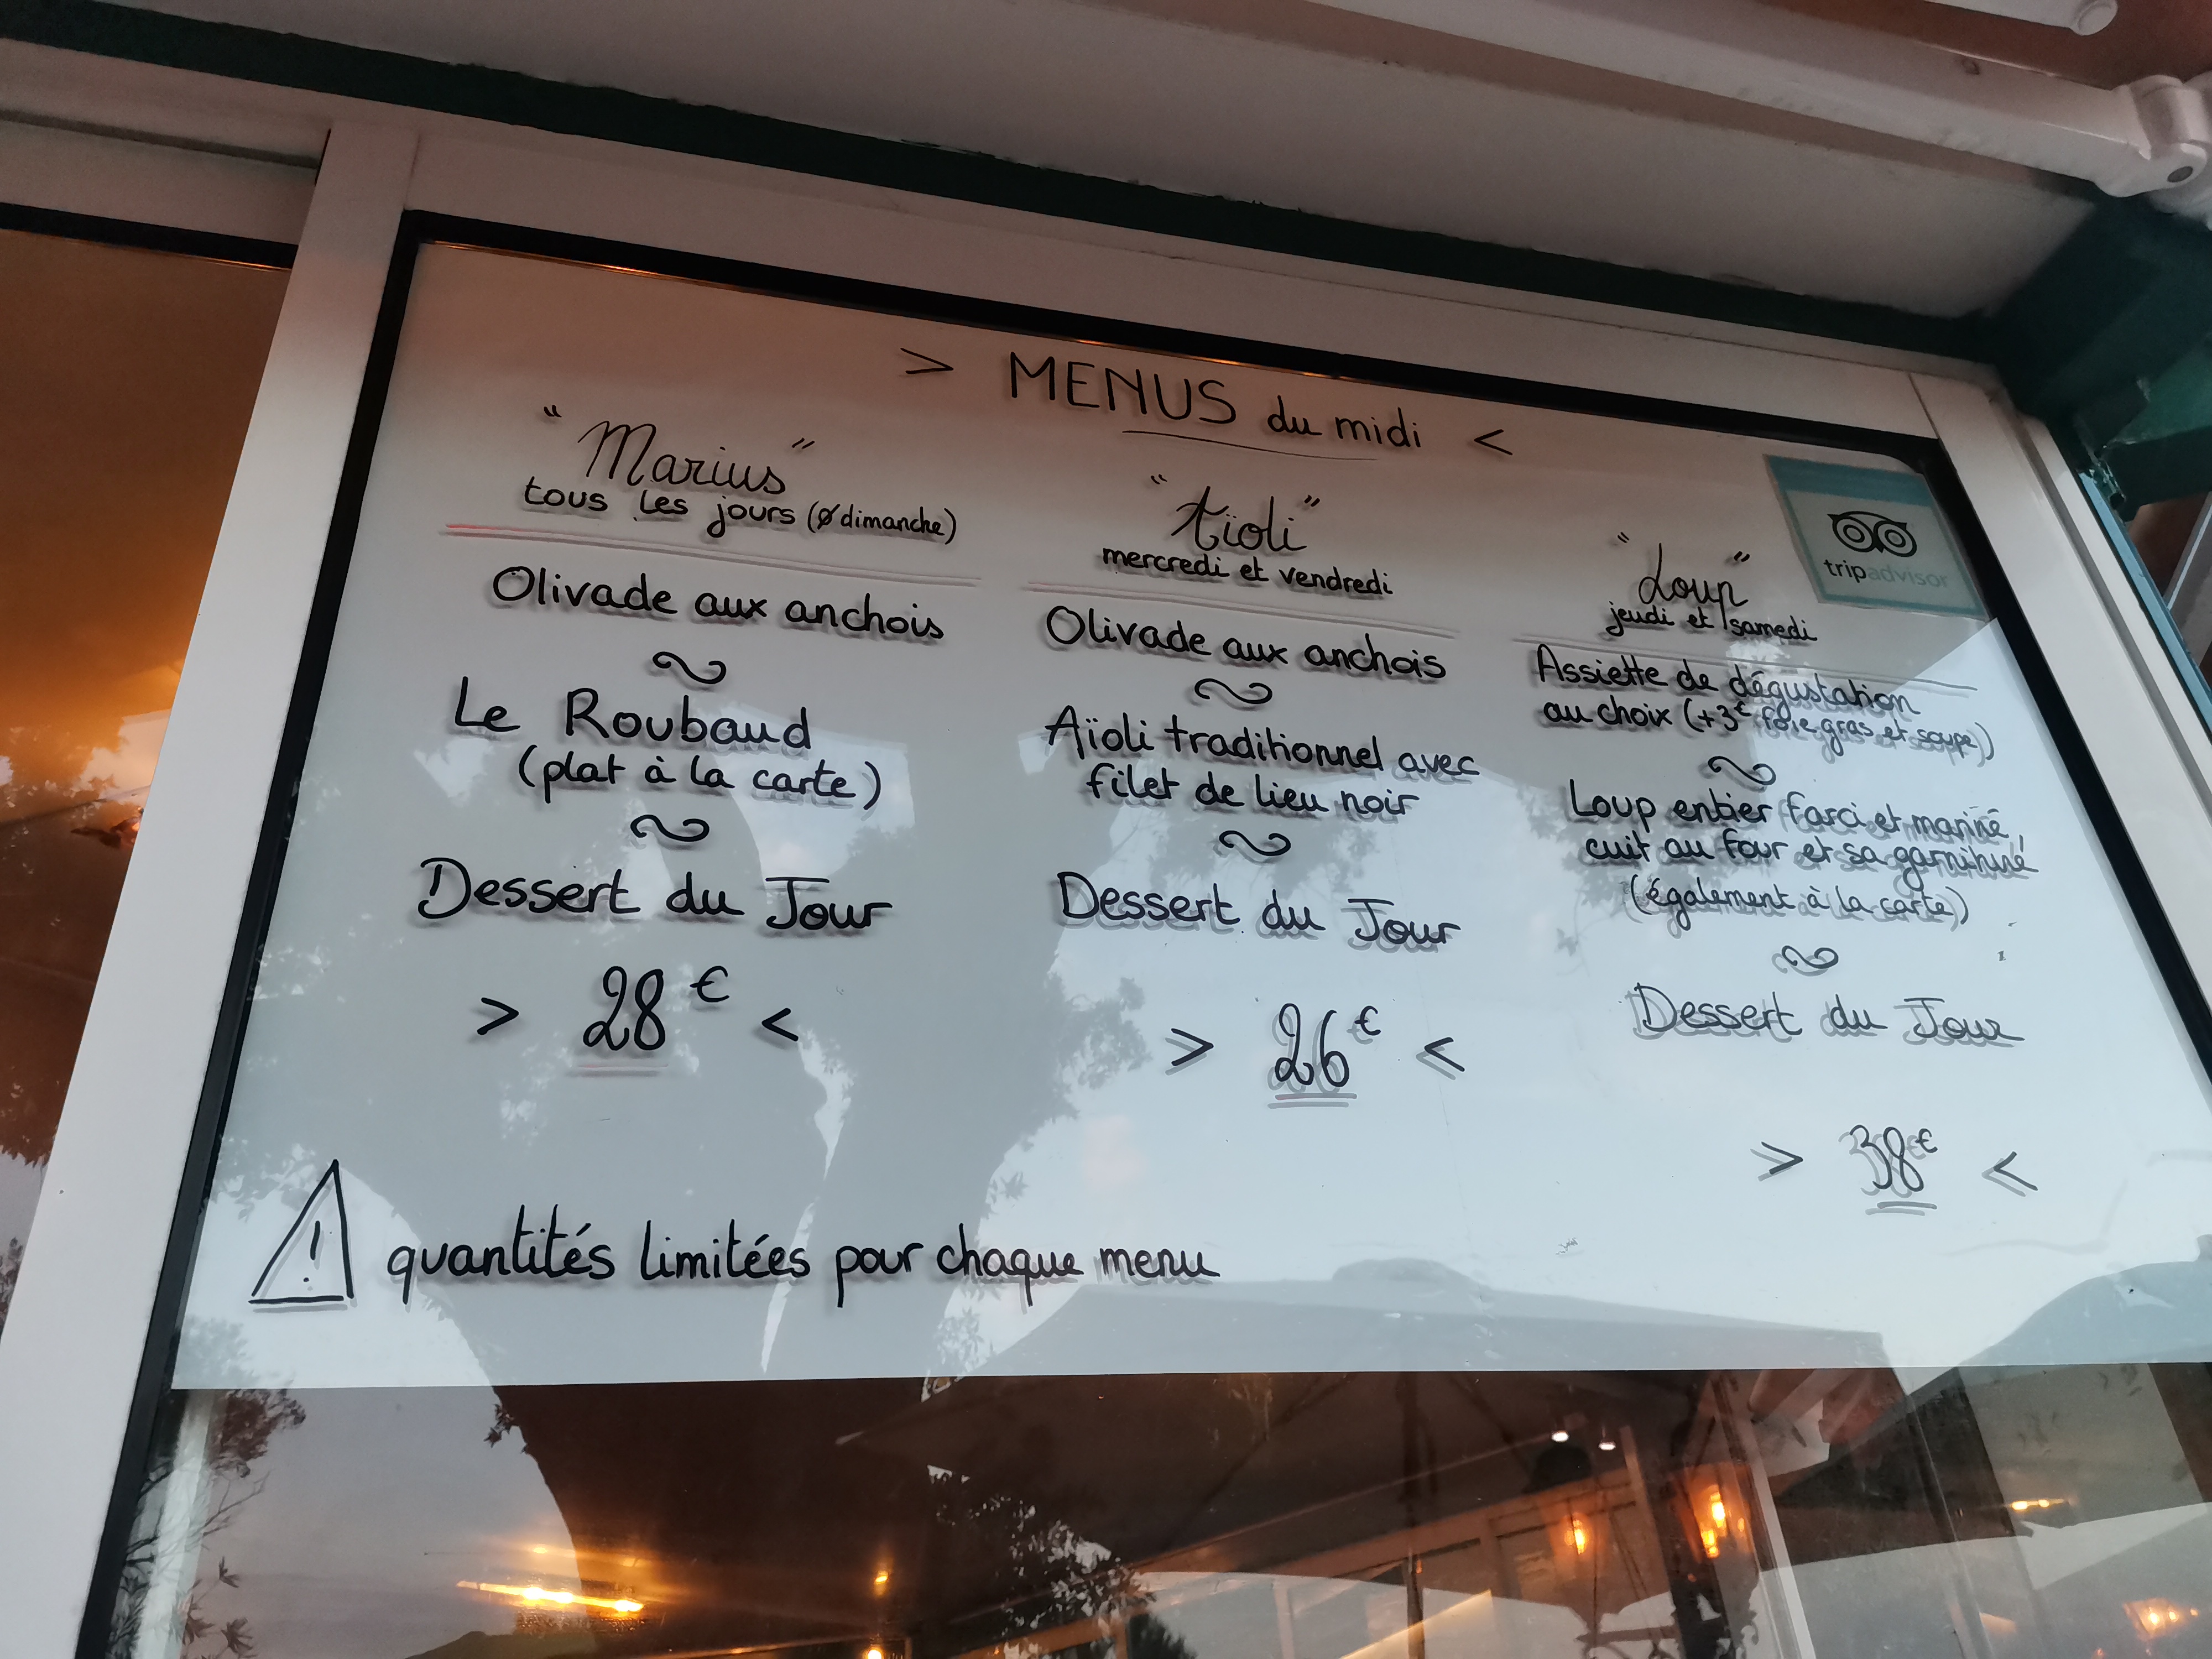 > MENUS du midi <
"Marius"
tous les jours (Ø dimanche)
Olivade aux anchois
Le Roubaud
(plat à la carte)
Dessert du Jour
> 28€ <
"Aïoli"
mercredi et vendredi
Olivade aux anchois
Aïoli traditionnel avec
filet de lieu noir
Dessert du Jour
> 26€ <
"Loup"
jeudi et samedi
Assiette de dégustation
au choix (+3€ foie gras et soupe)
Loup entier farci et mariné,
cuit au four et sa garniture
(également à la carte)
Dessert du Jour
> 38€ <
tripadvisor
! quantités limitées pour chaque menu